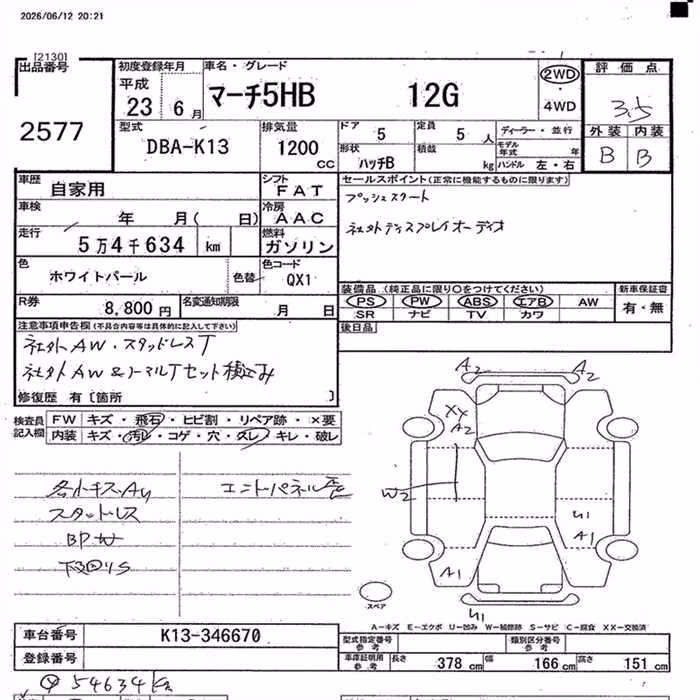 2026/06/12 20:21
[2130]
出品番号
2577
初度登録年月
平成
23 6月
車名・グレード
マーチ5HB 12G
2WD
4WD
評価点
3.5
外装 内装
B B
型式
DBA-K13
排気量
1200 cc
ドア 5
定員 5 人
形状
ハッチB
積載 kg
ディーラー・並行
モデル年式 年
ハンドル 左・右
車歴
自家用
シフト
FAT
車検
年 月( 日)
冷房
AAC
走行
5万4千634 km
燃料
ガソリン
色
ホワイトパール
色替
色コード
QX1
R券
8,800円
名変通知期限
月 日
セールスポイント(正常に機能するものに限ります)
プッシュスタート
社外ディスプレイオーディオ
装備品(純正品に限り○をつけてください)
PS PW ABS エアB AW
SR ナビ TV カワ
新車保証書
有・無
後日品
注意事項申告欄(不具合内容等は具体的に記入して下さい)
社外AW・スタッドレスT
社外AW&ノーマルTセット積込み
修復歴 有〔箇所 〕
検査員記入欄
FW キズ・飛石・ヒビ割・リペア跡・×要
内装 キズ・汚レ・コゲ・穴・スレ・キレ・破レ
スタッドレス
A2 A2
XX
A2
W2
U1
A1
A1
U1
スペア
A-キズ E-エクボ U-凹み W-補修跡 S-サビ C-腐食 XX-交換済
車台番号
K13-346670
登録番号
型式指定番号
参考
類別区分番号
参考
車庫証明用
参考
長さ 378 cm
幅 166 cm
高さ 151 cm
54634km